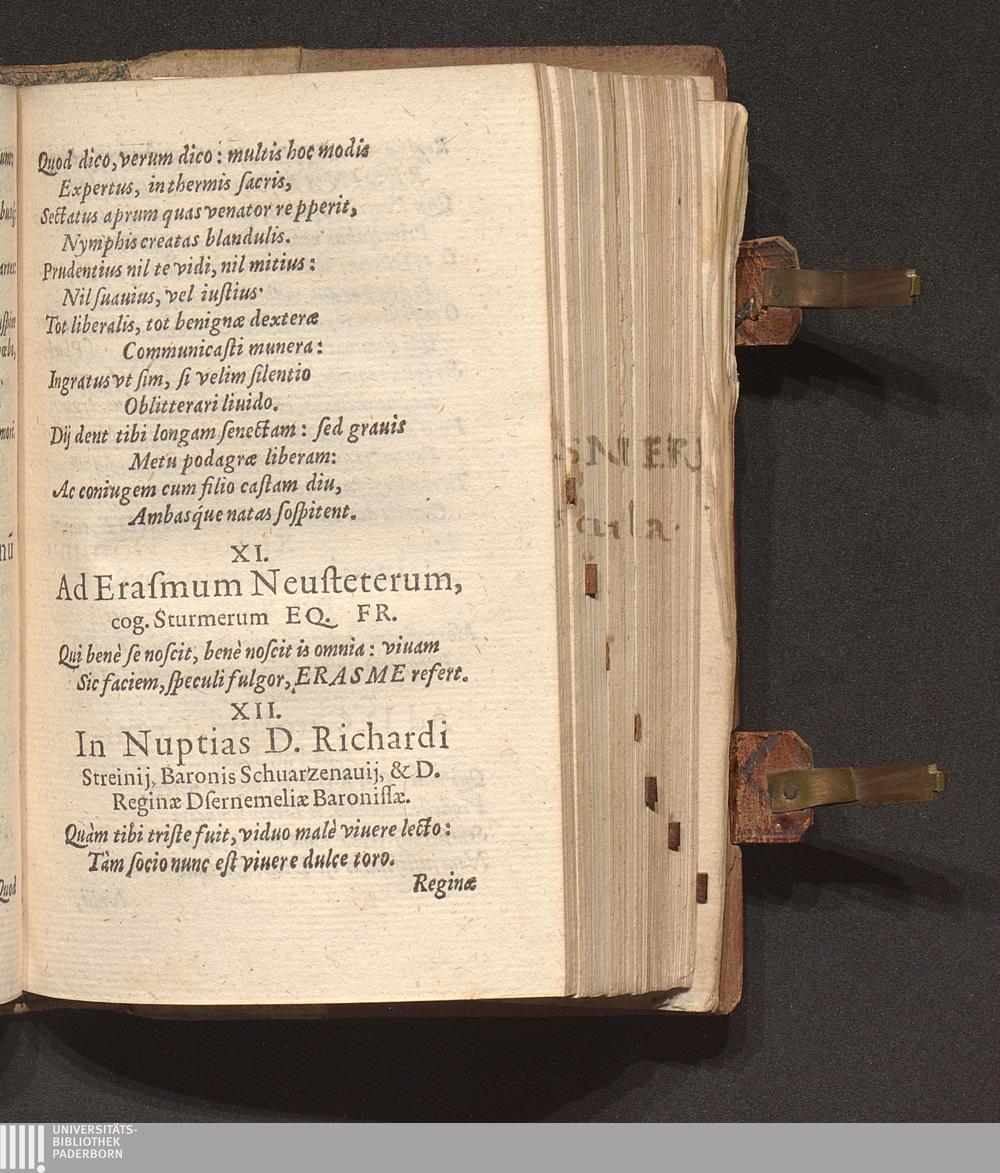 Quod dico, verum dico: multis hoc modis
Expertus, in thermis ſacris,
Sectatus aprum quas venator repperit,
Nymphis creatas blandulis.
Prudentius nil te vidi, nil mitius:
Nil ſuauius, vel iuſtius·
Tot liberalis, tot benignæ dexteræ
Communicaſti munera:
Ingratus vt ſim, ſi velim ſilentio
Oblitterari liuido.
Dij dent tibi longam ſenectam: ſed grauis
Metu podagræ liberam:
Ac coniugem cum filio caſtam diu,
Ambasq́ue natas ſoſpitent.
XI.
Ad Eraſmum Neuſteterum,
cog. Sturmerum EQ. FR.
Qui benè ſe noſcit, benè noſcit is omnia: viuam
Sic faciem, ſpeculi fulgor, ERASME refert.
XII.
In Nuptias D. Richardi
Streinij, Baronis Schuarzenauij, & D.
Reginæ Dſernemeliæ Baroniſſæ.
Quàm tibi triſte fuit, viduo malè viuere lecto:
Tàm ſocio nunc eſt viuere dulce toro.
Reginæ
Quod
UNIVERSITÄTS-
BIBLIOTHEK
PADERBORN